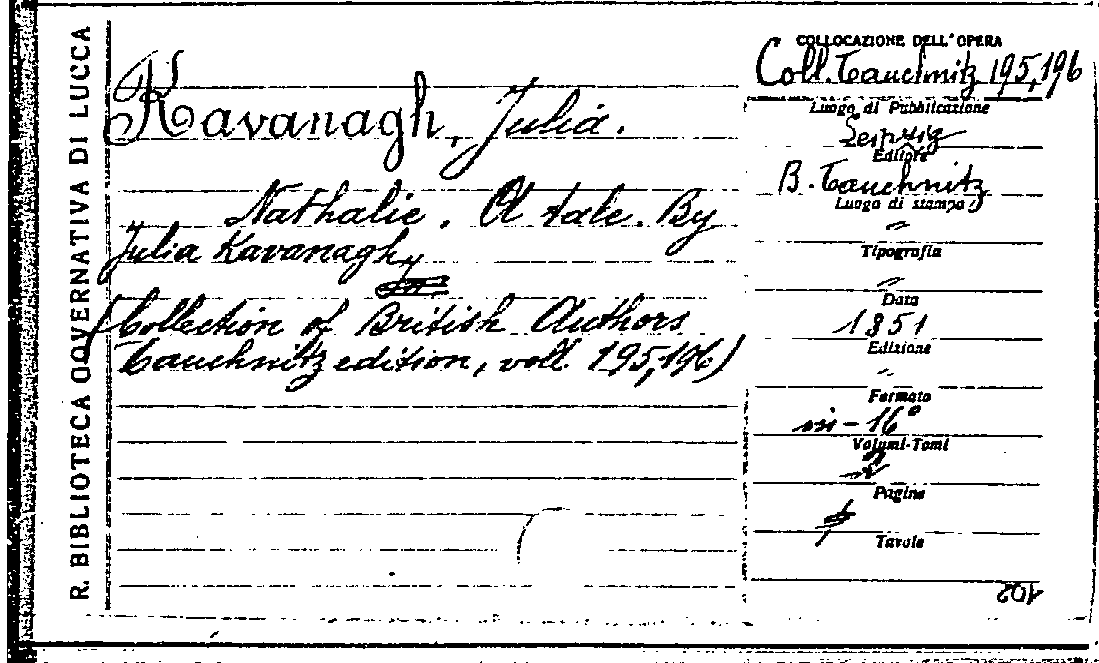 R. BIBLIOTECA GOVERNATIVA DI LUCCA
Kavanagh, Julia.
Nathalie. A tale. By
Julia Kavanagh
(Collection of British Authors
Tauchnitz edition, voll. 195,196)
COLLOCAZIONE DELL'OPERA
Coll. Tauchnitz 195,196
Luogo di Pubblicazione
Leipzig
Editore
B. Tauchnitz
Luogo di stampa
"
Tipografia
"
Data
1851
Edizione
"
Formato
in-16°
Volumi-Tomi
2
Pagine
Tavole
102